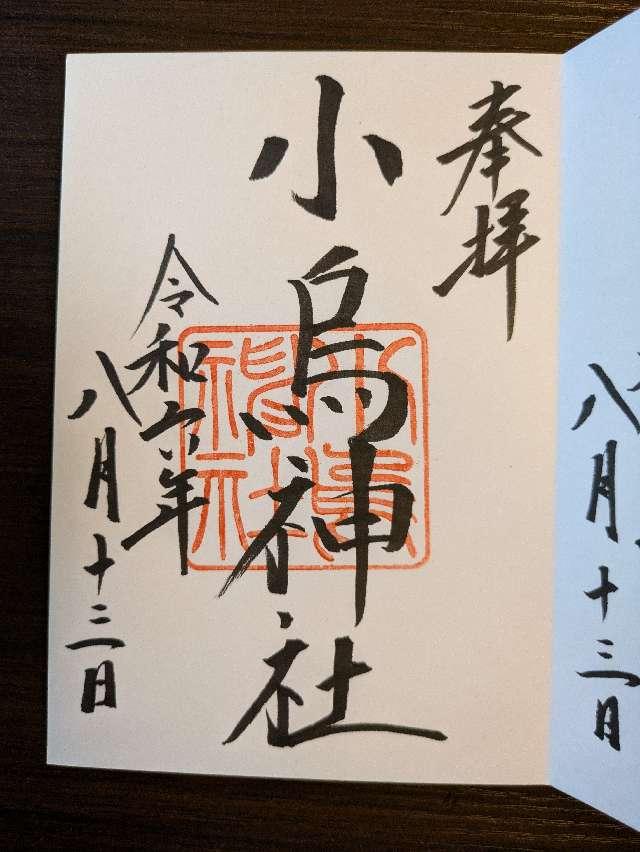 奉拝
小烏神社
小烏神社
令和六年
八月十三日
八月十三日